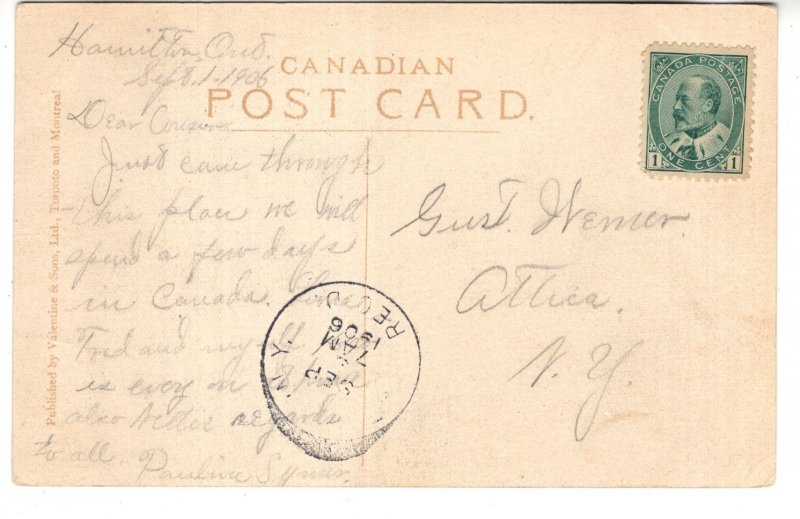 Hamilton, Ont.
Sept. 1-1906
CANADIAN
POST CARD.
Dear Cousins
Just came through
this place we will
spend a few days
in Canada.
Fred and myself
is
also Nellie regards
to all.
Pauline
Gust. Werner
Attica
N. Y.
CANADA POSTAGE
1 ONE CENT 1
REC'D
1906
7 AM
SEP
N.Y.
Published by Valentine & Sons, Ltd., Toronto and Montreal